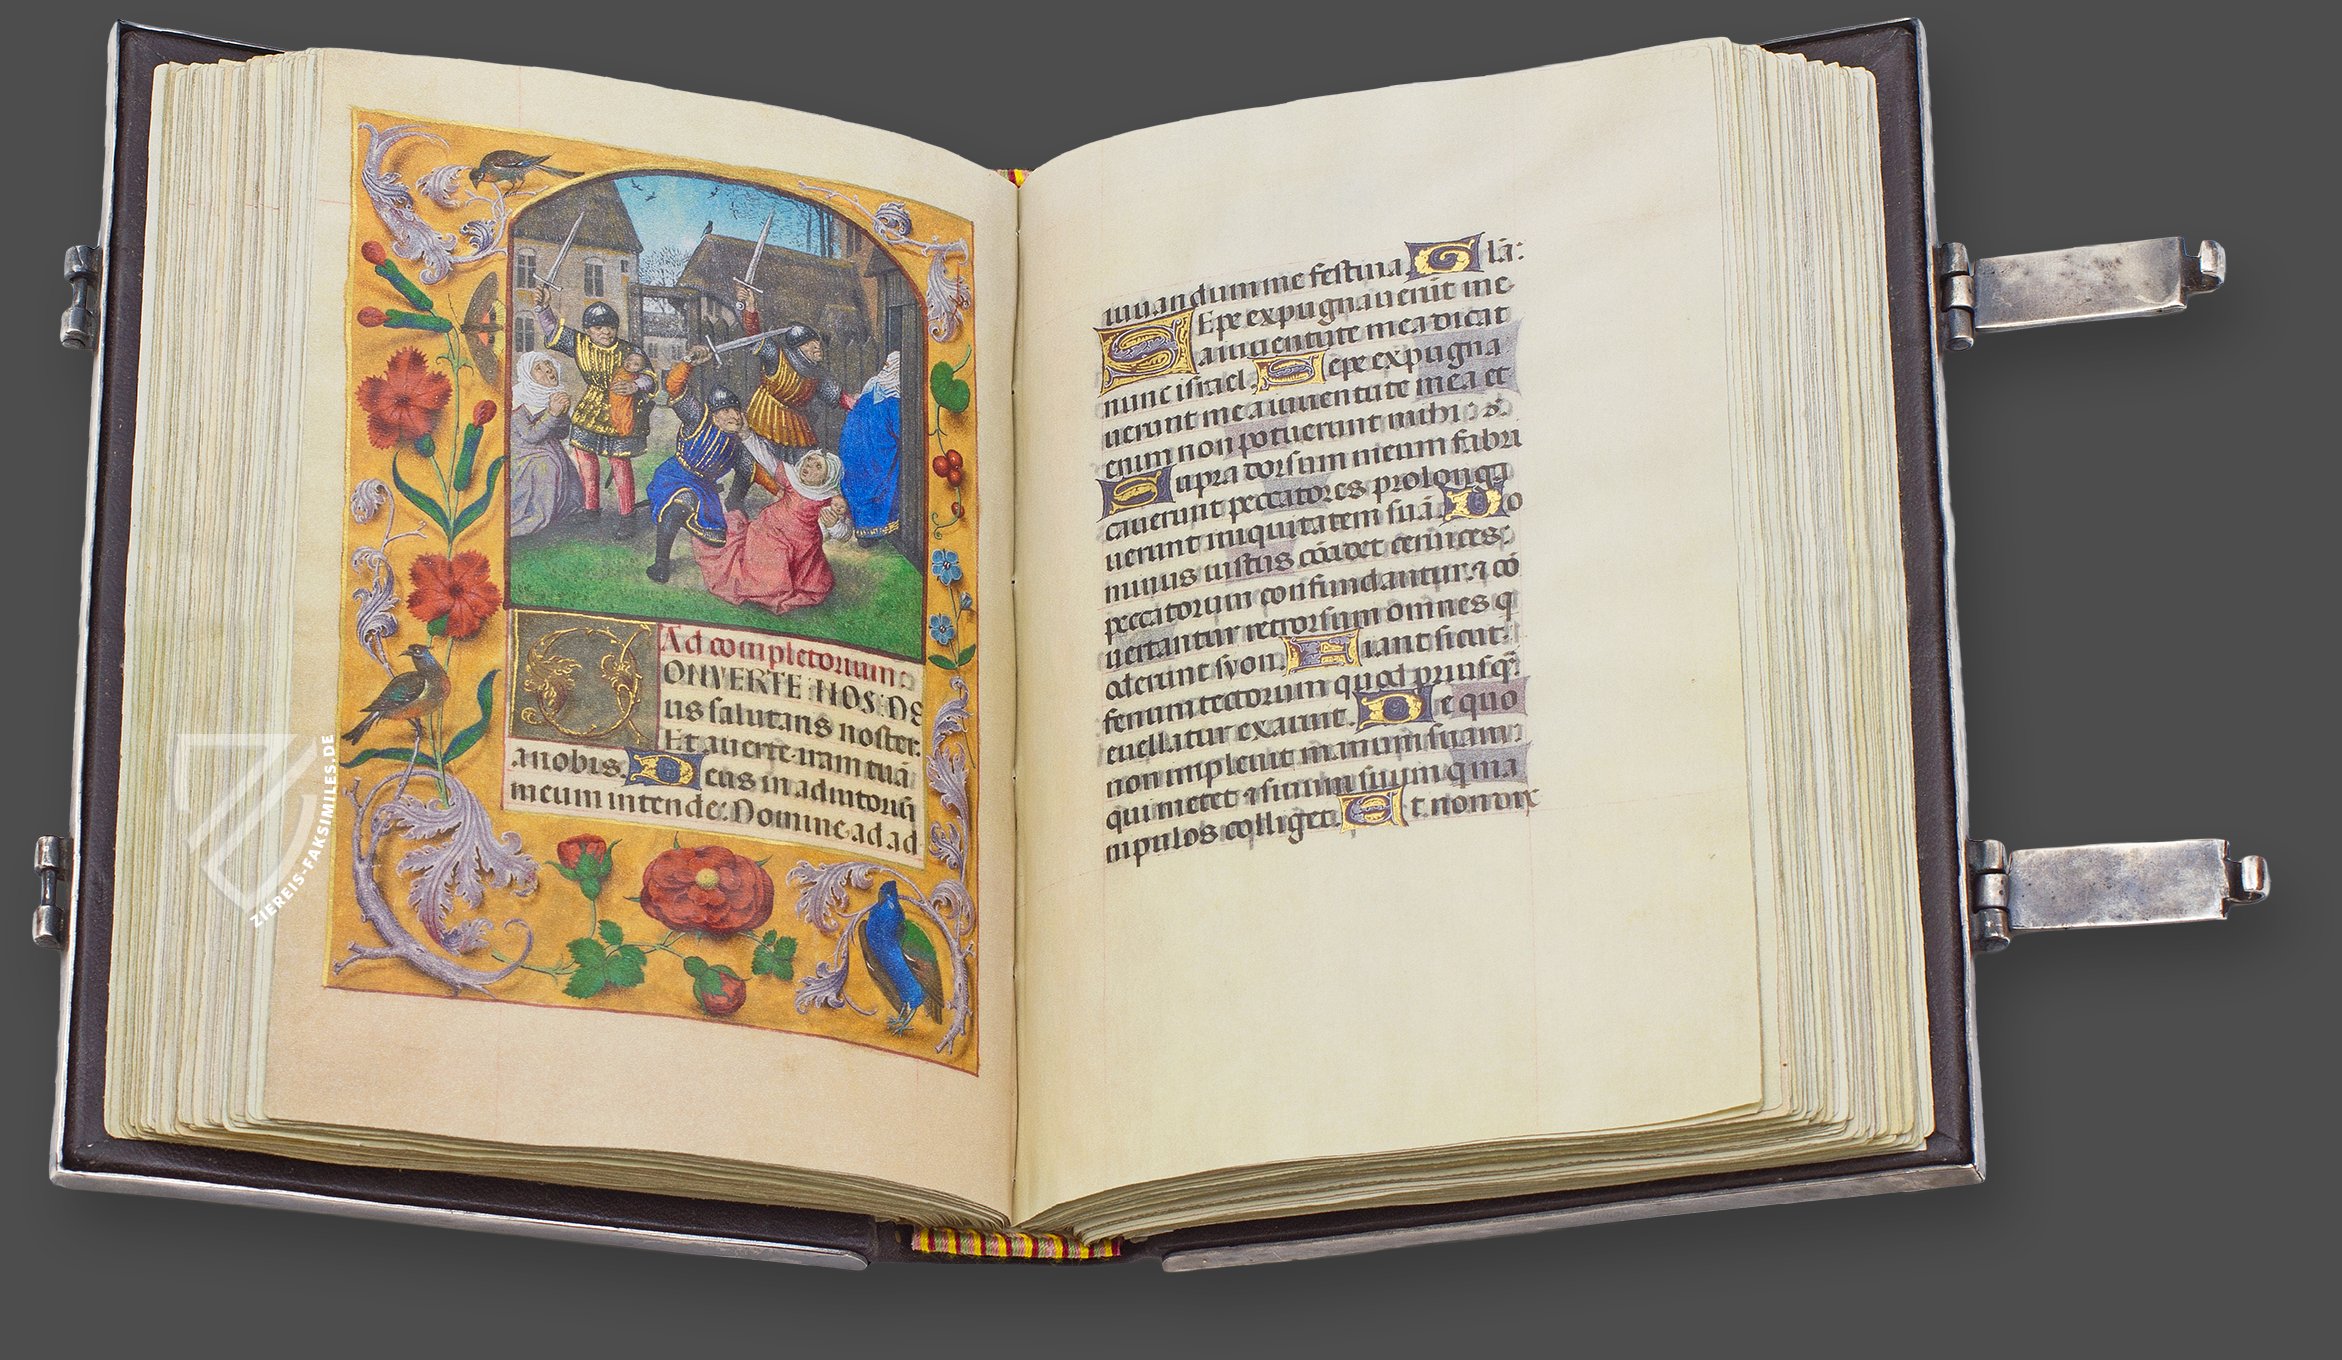 Ad completorium
CONVERTE NOS DE
us salutaris noster.
Et averte iram tuā
a nobis. Deus in adiutoriū
meum intende. Domine ad ad
iuuandum me festina. Glā:
Sepe expugnauerūt me
a iuuentute mea dicat
nunc israel. Sepe expugna
uerunt me a iuuentute mea et
enim non potuerunt michi.
Supra dorsum meum fabri
cauerunt peccatores prolonga
uerunt iniquitatem suā. Do
minus iustus cōcidet ceruices
peccatorum confundantur & cō
uertantur retrorsum omnes q
oderunt syon. Fiant sicut
fenum tectorum quod priusq̄
euellatur exaruit. De quo
non impleuit manum suam
qui metet & sinum suum q ma
nipulos colliget. Et non dix
ZIEREIS-FAKSIMILES.DE